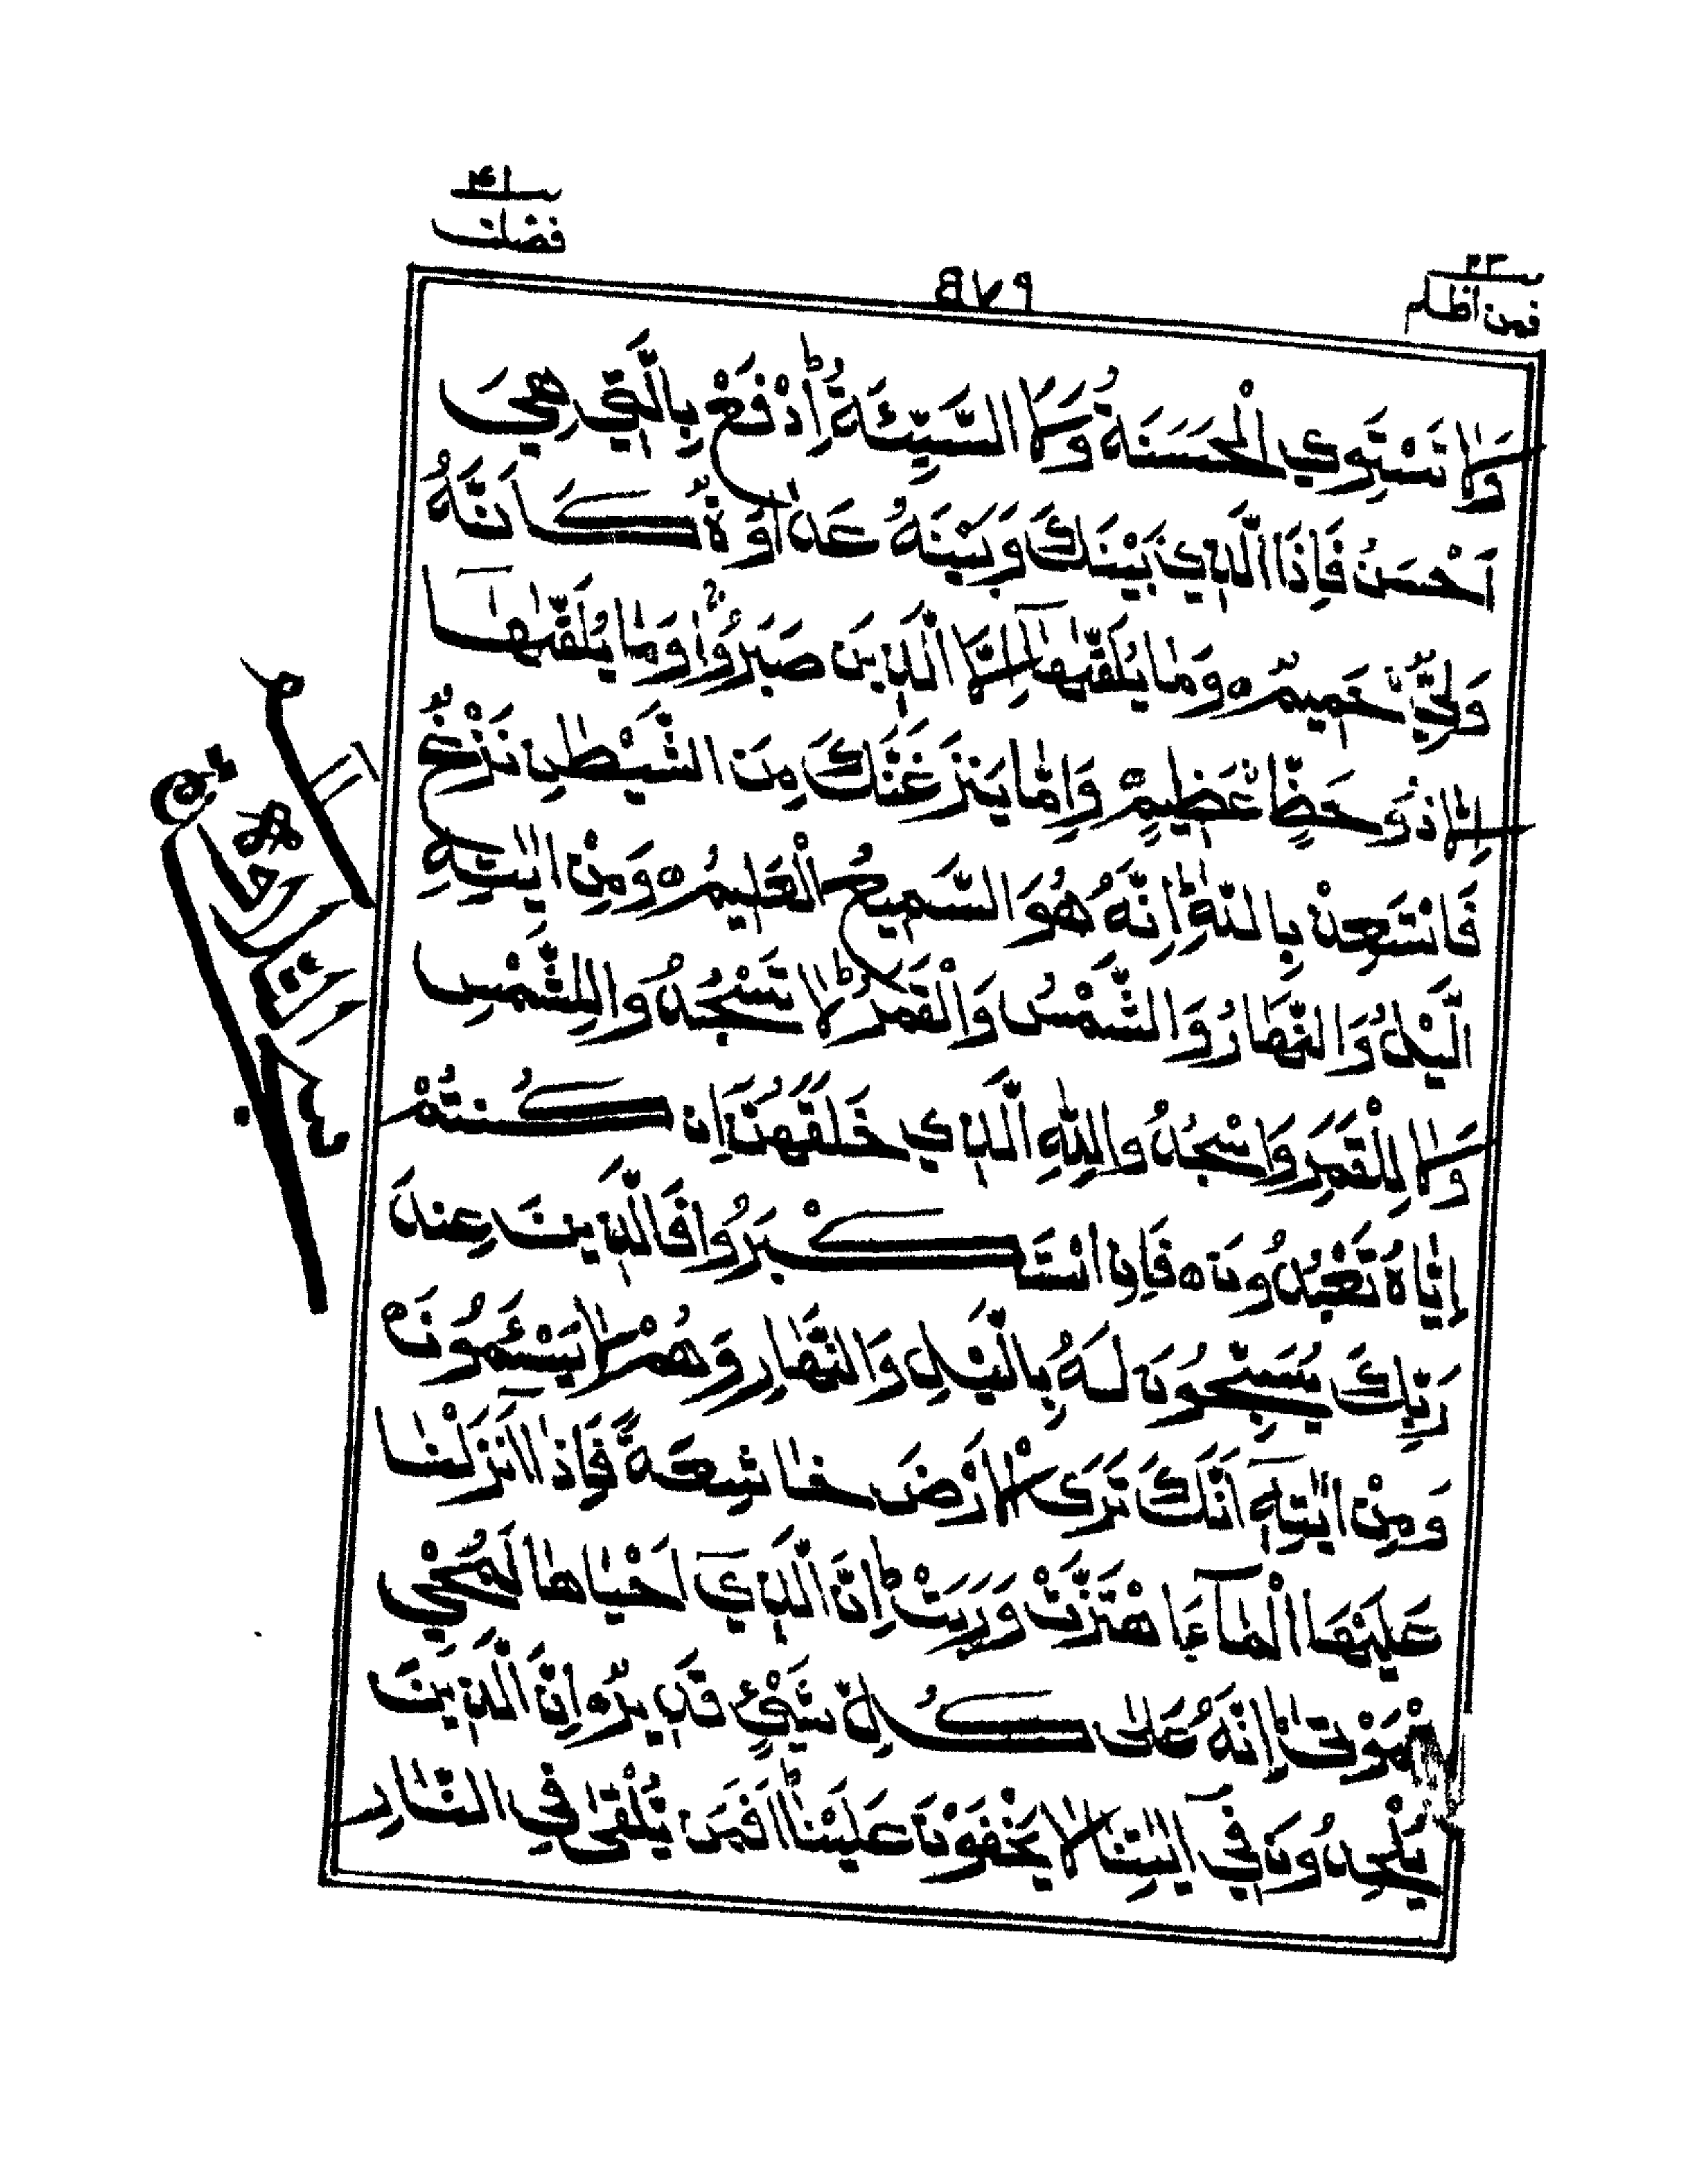 فمن اظلم ٢٣
فصلت ٤١
٩٧٥
وَلَا تَسْتَوِي الْحَسَنَةُ وَلَا السَّيِّئَةُ ؕ اِدْفَعْ بِالَّتِي هِيَ
اَحْسَنُ فَاِذَا الَّذِي بَيْنَكَ وَبَيْنَهٗ عَدَاوَةٌ كَاَنَّهٗ
وَلِيٌّ حَمِيمٌ ه وَمَا يُلَقّٰىهَا اِلَّا الَّذِينَ صَبَرُوْا وَمَا يُلَقّٰىهَآ
اِلَّا ذُو حَظٍّ عَظِيمٍ ه وَاِمَّا يَنْزَغَنَّكَ مِنَ الشَّيْطٰنِ نَزْغٌ
فَاسْتَعِذْ بِاللّٰهِ ؕ اِنَّهٗ هُوَ السَّمِيعُ الْعَلِيمُ ه وَمِنْ اٰيٰتِهِ
الَّيْلُ وَالنَّهَارُ وَالشَّمْسُ وَالْقَمَرُ ؕ لَا تَسْجُدُوا لِلشَّمْسِ
وَلَا لِلْقَمَرِ وَاسْجُدُوا لِلّٰهِ الَّذِي خَلَقَهُنَّ اِن كُنتُمْ
اِيَّاهُ تَعْبُدُونَ ه فَاِنِ اسْتَكْبَرُوا فَالَّذِينَ عِندَ
رَبِّكَ يُسَبِّحُونَ لَهٗ بِالَّيْلِ وَالنَّهَارِ وَهُمْ لَا يَسْئَمُونَ ه
وَمِنْ اٰيٰتِهٖٓ اَنَّكَ تَرَى الْاَرْضَ خَاشِعَةً فَاِذَا اَنزَلْنَا
عَلَيْهَا الْمَآءَ اهْتَزَّتْ وَرَبَتْ ؕ اِنَّ الَّذِيٓ اَحْيَاهَا لَمُحْيِ
الْمَوْتٰى ؕ اِنَّهٗ عَلٰى كُلِّ شَيْءٍ قَدِيرٌ ه اِنَّ الَّذِينَ
يُلْحِدُونَ فِيٓ اٰيٰتِنَا لَا يَخْفَوْنَ عَلَيْنَا ؕ اَفَمَن يُلْقٰى فِي النَّارِ